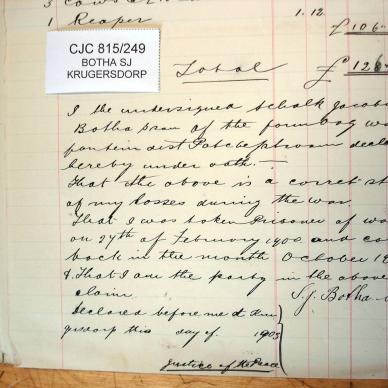 3 Cows
1 Reaper 1.12.
£106
CJC 815/249
BOTHA SJ
KRUGERSDORP
Total £126
I the undersigned Schalk Jacob
Botha of the farm
fontein dist Potchefstroom decla
hereby under oath: —
That the above is a corret st
of my losses during the war.
That I was taken Prisoner of wa
on 27th of February 1900 and ca
back in the month October 19
& That I am the party in the above
claim
S.J. Botha
Declared before me at Kru
gersdorp this day of 1903
Justice of the Peace